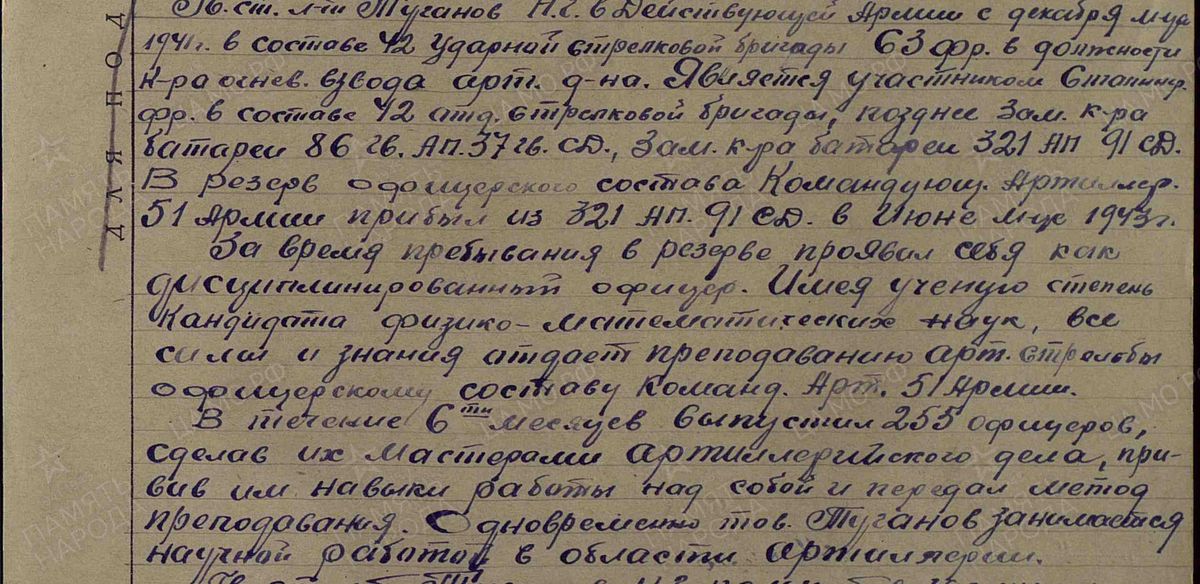 Тв. ст. л-т Туганов Н.Г. в Действующей Армии с декабря м-ца
1941г. в составе 42 Ударной стрелковой бригады 63 фр. в должности
к-ра огнев. взвода арт. д-на. Является участником Сталингр.
фр. в составе 42 отд. стрелковой бригады, позднее Зам. к-ра
батареи 86 гв. АП. 37 гв. СД., Зам. к-ра батареи 321 АП 91 СД.
В резерв офицерского состава Командующ. Артиллер.
51 Армии прибыл из 321 АП. 91 СД. в Июне м-це 1943г.
За время пребывания в резерве проявил себя как
дисциплинированный офицер. Имея ученую степень
Кандидата физико-математических наук, все
силы и знания отдает преподаванию арт. стрельбы
офицерскому составу Команд. Арт. 51 Армии.
В течение 6ти месяцев выпустил 255 офицеров,
сделав их мастерами артиллерийского дела, при-
вив им навыки работы над собой и передал метод
преподавания. Одновременно тов. Туганов занимается
научной работой в области артиллерии.
ДЛЯ ПОД
ПАМЯТЬ НАРОДА